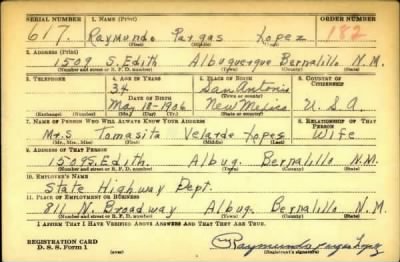 SERIAL NUMBER 1. NAME (Print) ORDER NUMBER
617. Raymundo Vargas Lopez 182
(First) (Middle) (Last)
2. ADDRESS (Print)
1509 S. Edith Albuquerque Bernalillo N.M.
(Number and street or R. F. D. number) (Town) (County) (State)
3. TELEPHONE 4. AGE IN YEARS 5. PLACE OF BIRTH 6. COUNTRY OF CITIZENSHIP
34 San Antonio
DATE OF BIRTH (Town or county)
May-18-1906 New Mexico U.S.A.
(Exchange) (No.) (Mo.) (Day) (Yr.) (State or country)
7. NAME OF PERSON WHO WILL ALWAYS KNOW YOUR ADDRESS 8. RELATIONSHIP OF THAT PERSON
Mrs Tomasita Velarde Lopez Wife
(Mr., Mrs., Miss) (First) (Middle) (Last)
9. ADDRESS OF THAT PERSON
1509 S. Edith. Albuq. Bernalillo N.M.
(Number and street or R. F. D. number) (Town) (County) (State)
10. EMPLOYER'S NAME
State Highway Dept.
11. PLACE OF EMPLOYMENT OR BUSINESS
811 N. Broadway Albuq. Bernalillo N.M.
(Number and street or R. F. D. number) (Town) (County) (State)
I AFFIRM THAT I HAVE VERIFIED ABOVE ANSWERS AND THAT THEY ARE TRUE.
REGISTRATION CARD
D. S. S. Form 1 (over) Raymundo Vargas Lopez
(Registrant's signature)